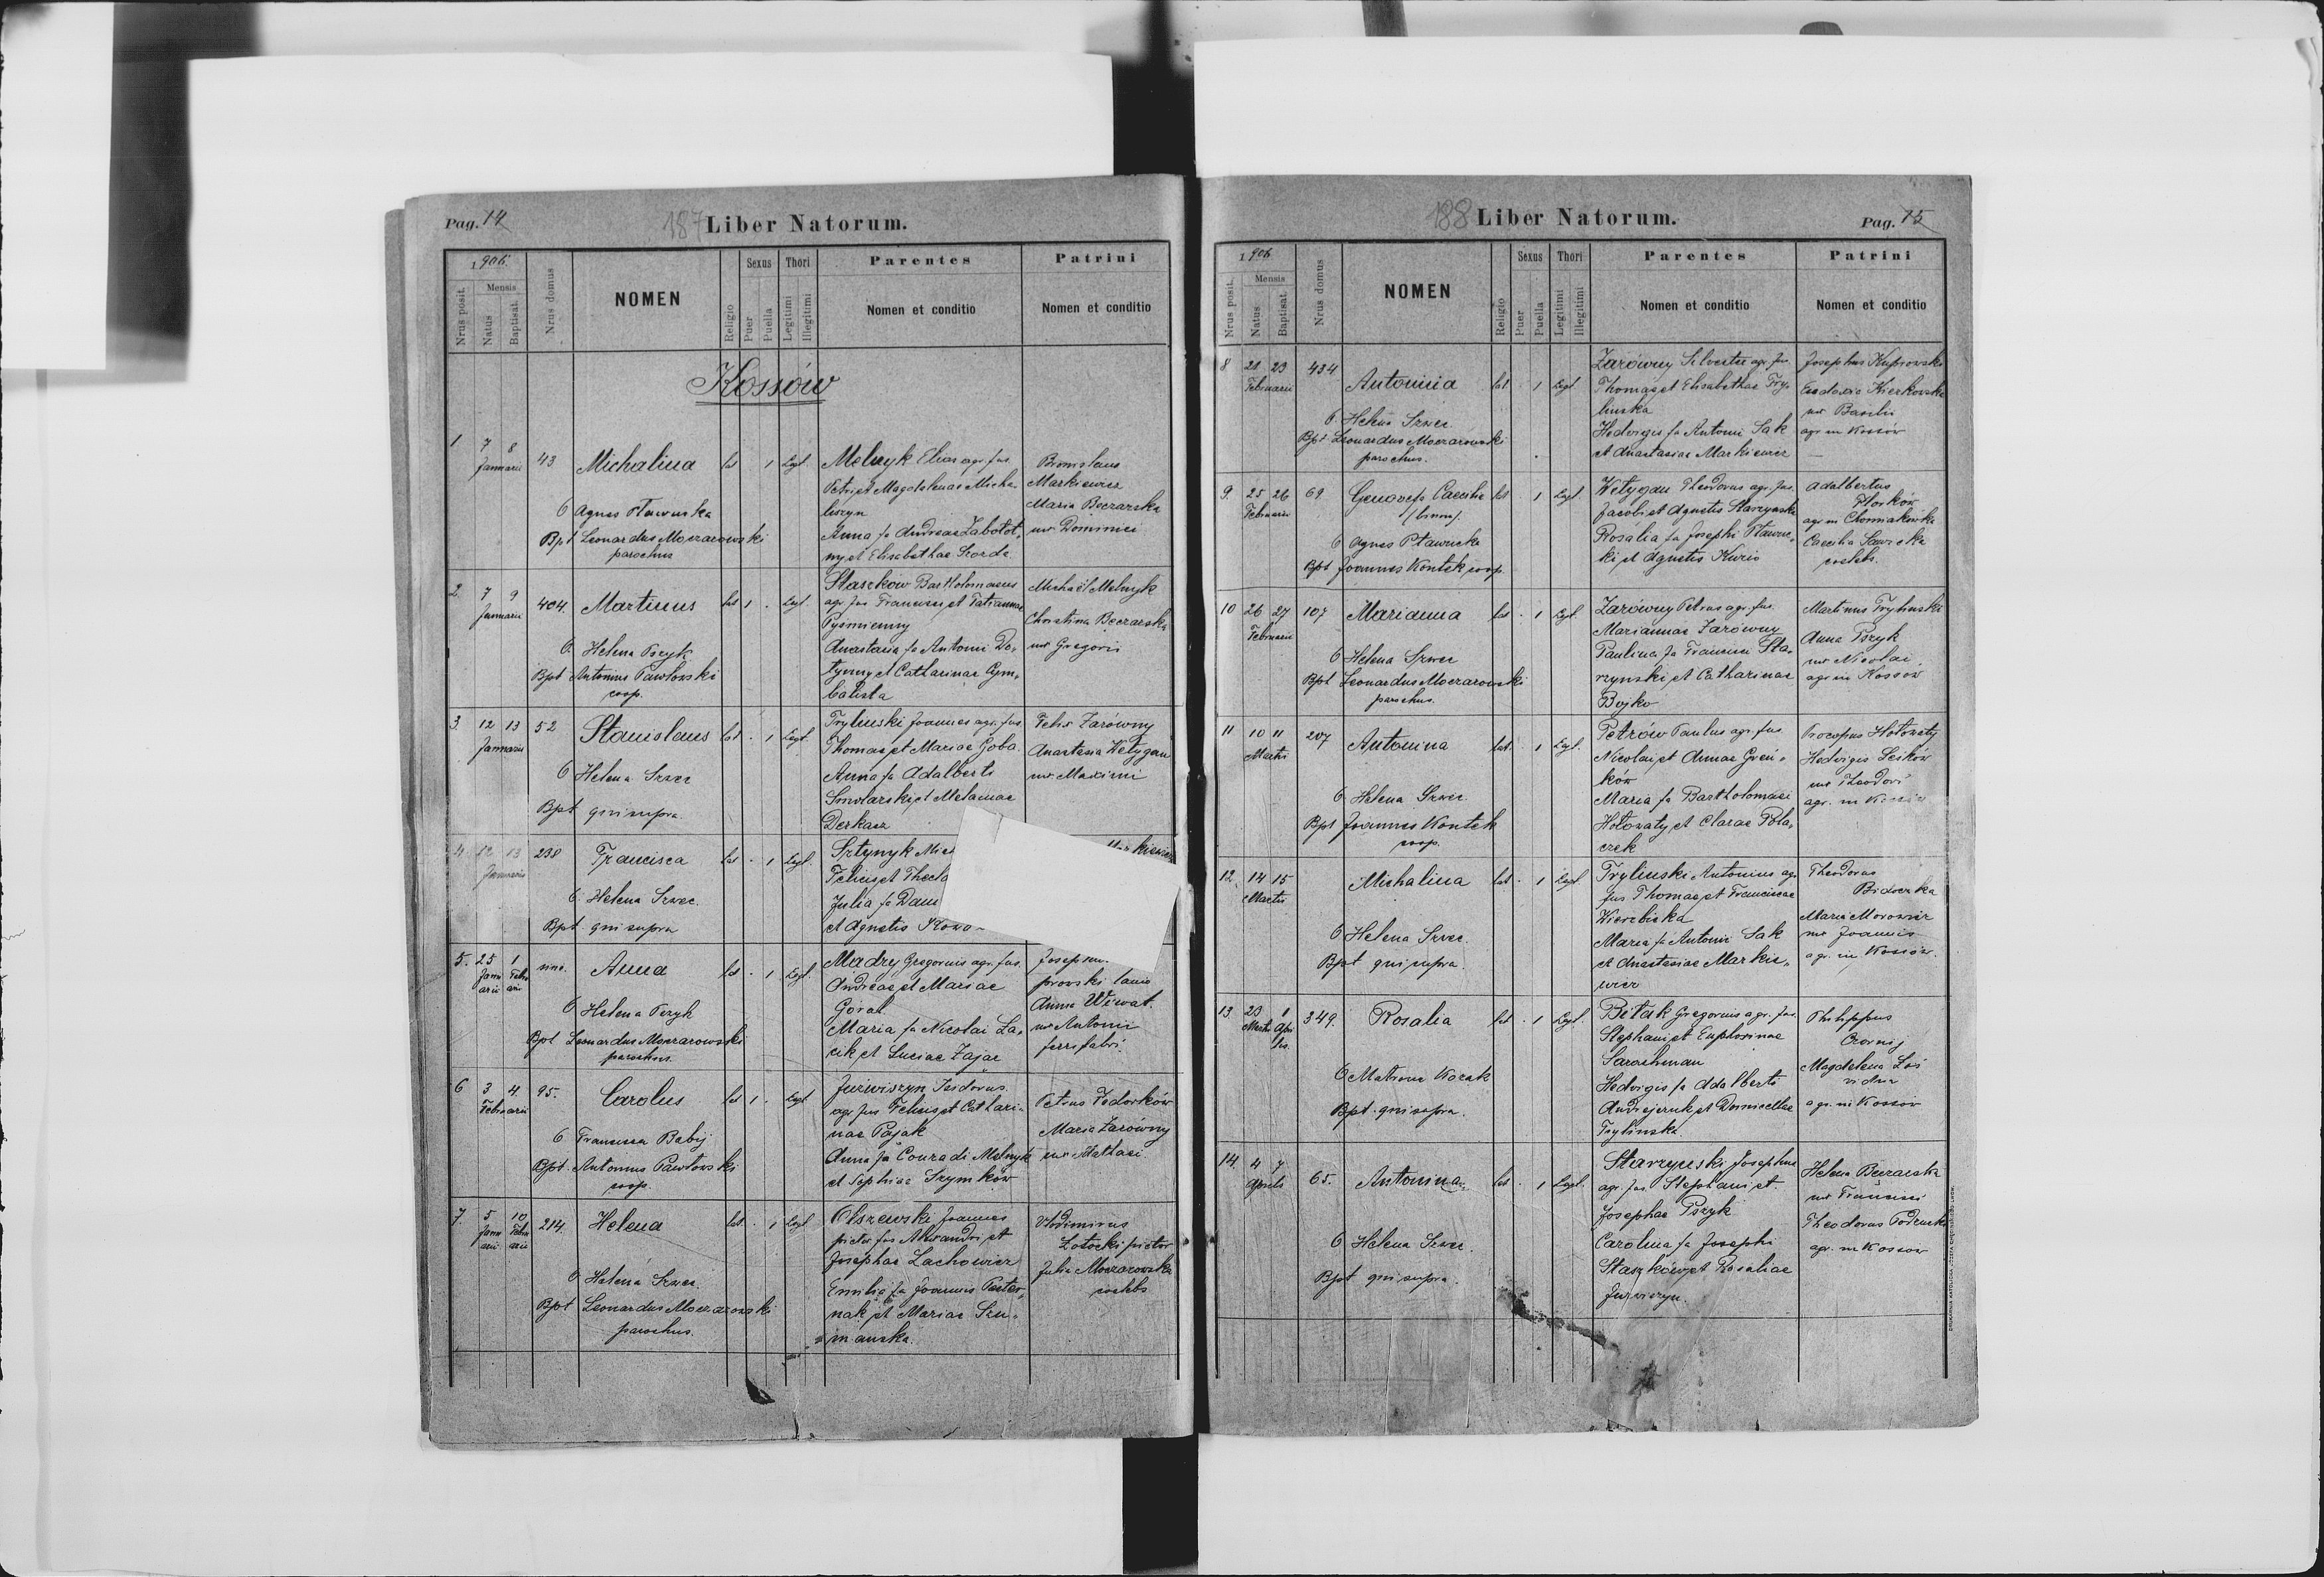 Pag. 14
187
Liber Natorum.
1906.
Nrus posit.
Mensis
Natus
Baptisat.
Nrus domus
NOMEN
Religio
Sexus
Puer
Puella
Thori
Legitimi
Illegitimi
Parentes
Nomen et conditio
Patrini
Nomen et conditio
Kossów
1 7 8 Januarii 43 Michalina lat 1 Legt.
O Agnes
Bpt Leonardus Moczarowski
parochus
Melnyk Elias agr. fus
Petri et Magdalenae Micha
liszyn
Anna fa Andreae Zabolot,
ny et Elisabethae
Bronislaus
Markiewicz
Maria Beczarska
ux. Dominici
2. 7 9 Januarii 404. Martinus lat 1 . Legt.
O Helena Pszyk
Bpt Antonius Pawlowski
coop.
Staszkow Bartholomaeus
agr. fus Francisci et Tatiannae
Pysmienny
Anastasia fa Antonii Do,
tynny et Catharinae Cym,
balista
Michaël Melnyk
Christina Beczarska
ux Gregorii
3. 12 13 Januarii 52 Stanislaus lat . 1 Legt.
O Helena Szwec
Bpt qui supra.
Trylinski Joannes agr. fus
Thomae et Mariae Goba.
Anna fa Adalberti
Smolarski et Melaniae
Derkacz
Felix Zarówny
Anastasia Wetygan
ux Maximi
4 12 13 Januarii 238 Francisca lat . 1 Legt.
O Helena Szwec.
Bpt. qui supra
Sztynyk Mich
Felicis et Thecla
Julia fa Dani
et Agnetis
Markiewicz
5. 25 Januarii 1 Februarii Anna lat . 1 Legt.
O Helena Pszyk
Bpt Leonardus Moczarowski
parochus.
Madry Gregorius agr. fus.
Andreae et Mariae
Góral
Maria fa Nicolai La,
cik et Luciae Zajac
Joseph
prowski lanio
Anna Wiwat
ux Antonii
ferrifabri.
6. 3 4. Februarii 95. Carolus lat 1 . Legt
O Francisca Babij
Bpt. Antonius Pawlowski
coop.
Juzwiszyn Isidorus
agr. fus Felicis et Cathari,
nae Pajak
Anna fa Conradi Melnyk
et Sophiae Szymków
Petrus Fedorków
Maria Zarówny
ux Mathaei
7. 5 Januarii 10 Februarii 214. Helena lat . 1 Legt
O Helena Szwec
Bpt Leonardus Moczarowski
parochus.
Olszewski Joannes
pictor fus Alexandri et
Josephae Lachowicz
Emilia fa Joannis Paster,
nak et Mariae Szu,
manska.
Vlodimirus
Zotocki pictor
Julia Moczarowska
coelebs
188
Liber Natorum.
Pag. 15
1906
Nrus posit.
Mensis
Natus
Baptisat.
Nrus domus
NOMEN
Religio
Sexus
Puer
Puella
Thori
Legitimi
Illegitimi
Parentes
Nomen et conditio
Patrini
Nomen et conditio
8 21 23 Februarii 434 Antonina lat . 1 Legt
O Helena Szwec
Bpt Leonardus Moczarowski
parochus.
Zarówny Silvester agr. fus
Thomae et Elisabethae Try,
linska
Hedvigis fa Antonii Sak
et Anastasiae Markiewicz
Josephus Kuprowski
Eudoxia Kierkowska
ux Basilii
agr. in Kossów
9. 25 26 Februarii 69. Genovefa Caecilia lat . 1 Legt
/binom/.
O Agnes Ptawucka
Bpt Joannes Kontek coop.
Wetygan Theodorus agr. fus.
Jacobi et Agnetis Starzynska
Rosalia fa Josephi Ptawuc,
ki et Agnetis Kurio
Adalbertus
Florków
agr. in Chomiakówka
Caecilia Sawicka
coelebs.
10 26 27 Februarii 107 Marianna lat . 1 Legt.
O Helena Szwec
Bpt Leonardus Moczarowski
parochus.
Zarówny Petrus agr. fus.
Mariannae Zarówny
Paulina fa Francisci Sta,
rzynski et Catharinae
Bojko
Martinus Trylinski
Anna Pszyk
ux Nicolai.
agr. in Kossów
11 10 11 Martii 207 Antonina lat . 1 Legt.
O Helena Szwec.
Bpt Joannes Kontek
coop.
Petrów Paulus agr. fus
Nicolai et Annae Gren,
ków
Maria fa Bartholomaei
Holowaty et Clarae Pola,
czek
Procopius Holowaty
Hedvigis Leśków
ux Theodori
agr. in Kossów
12. 14 15 Martii Michalina lat . 1 Legt.
O Helena Szwec.
Bpt qui supra.
Trylinski Antonius agr.
fus Thomae et Franciscae
Wierzbicka
Maria fa Antonii Sak
et Anastasiae Markie,
wicz
Theodorus
Maria Morowicz
ux Joannis
agr. in Kossów.
13. 29 Martii 1 Aprilis. 349. Rosalia lat . 1 Legt.
O Matrona Kozak
Bpt. qui supra.
Bitak Gregorius agr. fus.
Stephani et Euphrosinae
Hedvigis fa Adalberti
Andrejczuk et Domicellae
Trylinska.
Philippus
Czornij
Magdalena Loś
vidua
agr. in Kossów
14. 4 7 Aprilis 65. Antonina lat . 1 Legt.
O Helena Szwec.
Bpt qui supra.
Starzynski Josephus
agr. fus. Stephani et
Josephae Pszyk
Carolina fa Josephi
Staszków et Rosaliae
Juzwiszyn.
Helena Beczarska
ux Francisci
Theodorus
agr. in Kossów